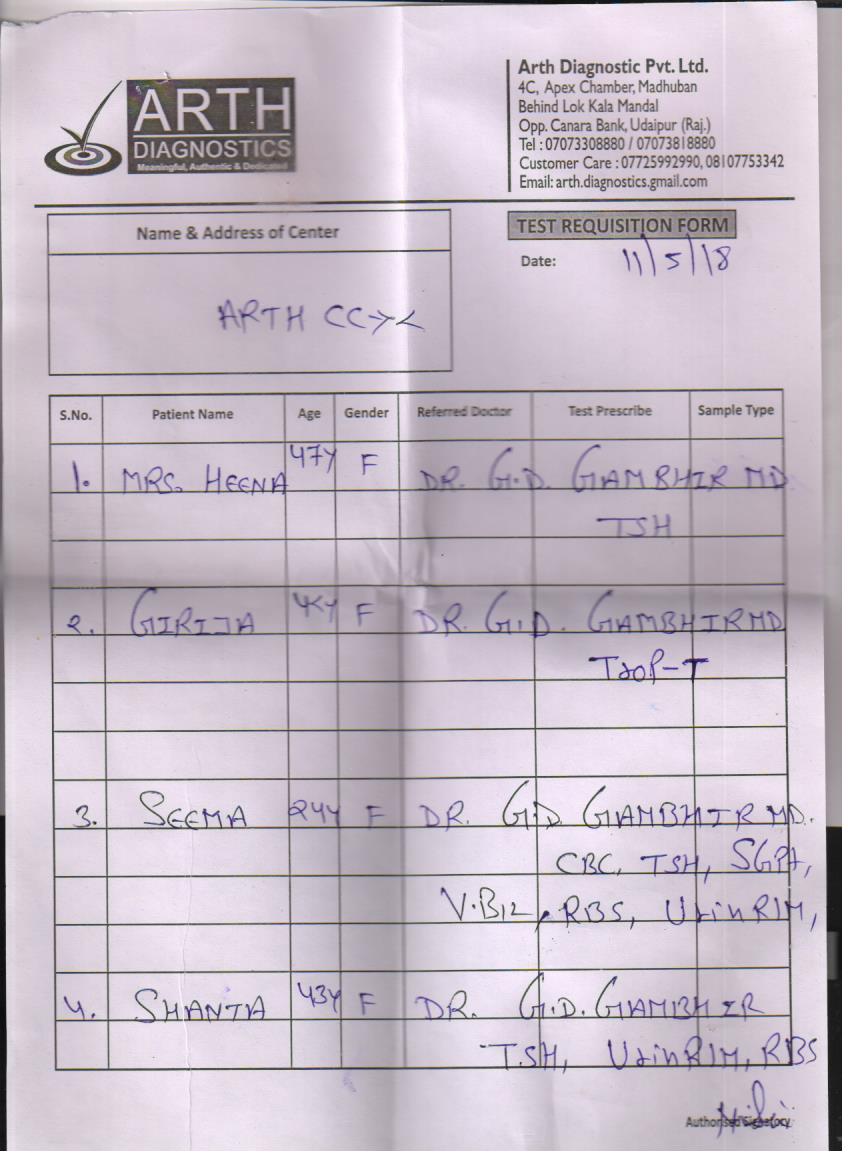 ARTH
DIAGNOSTICS
Meaningful, Authentic & Dedicated
Arth Diagnostic Pvt. Ltd.
4C, Apex Chamber, Madhuban
Behind Lok Kala Mandal
Opp. Canara Bank, Udaipur (Raj.)
Tel : 07073308880 / 07073818880
Customer Care : 07725992990, 08107753342
Email: arth.diagnostics.gmail.com
Name & Address of Center
TEST REQUISITION FORM
Date: 11/5/18
ARTH
S.No. Patient Name Age Gender Referred Doctor Test Prescribe Sample Type
1. MRS. HEENA 47Y F DR. G.D. GAMBHIR MD
TSH
2. GIRIJA F DR. G.D. GAMBHIR MD
TROP-T
3. SEEMA 24Y F DR. G.D GAMBHIR MD.
CBC, TSH, SGPT,
V.B12, RBS, Urin R/M,
4. SHANTA 43Y F DR. G.D. GAMBHIR
TSH, Urin R/M, RBS
Authorised Signatory